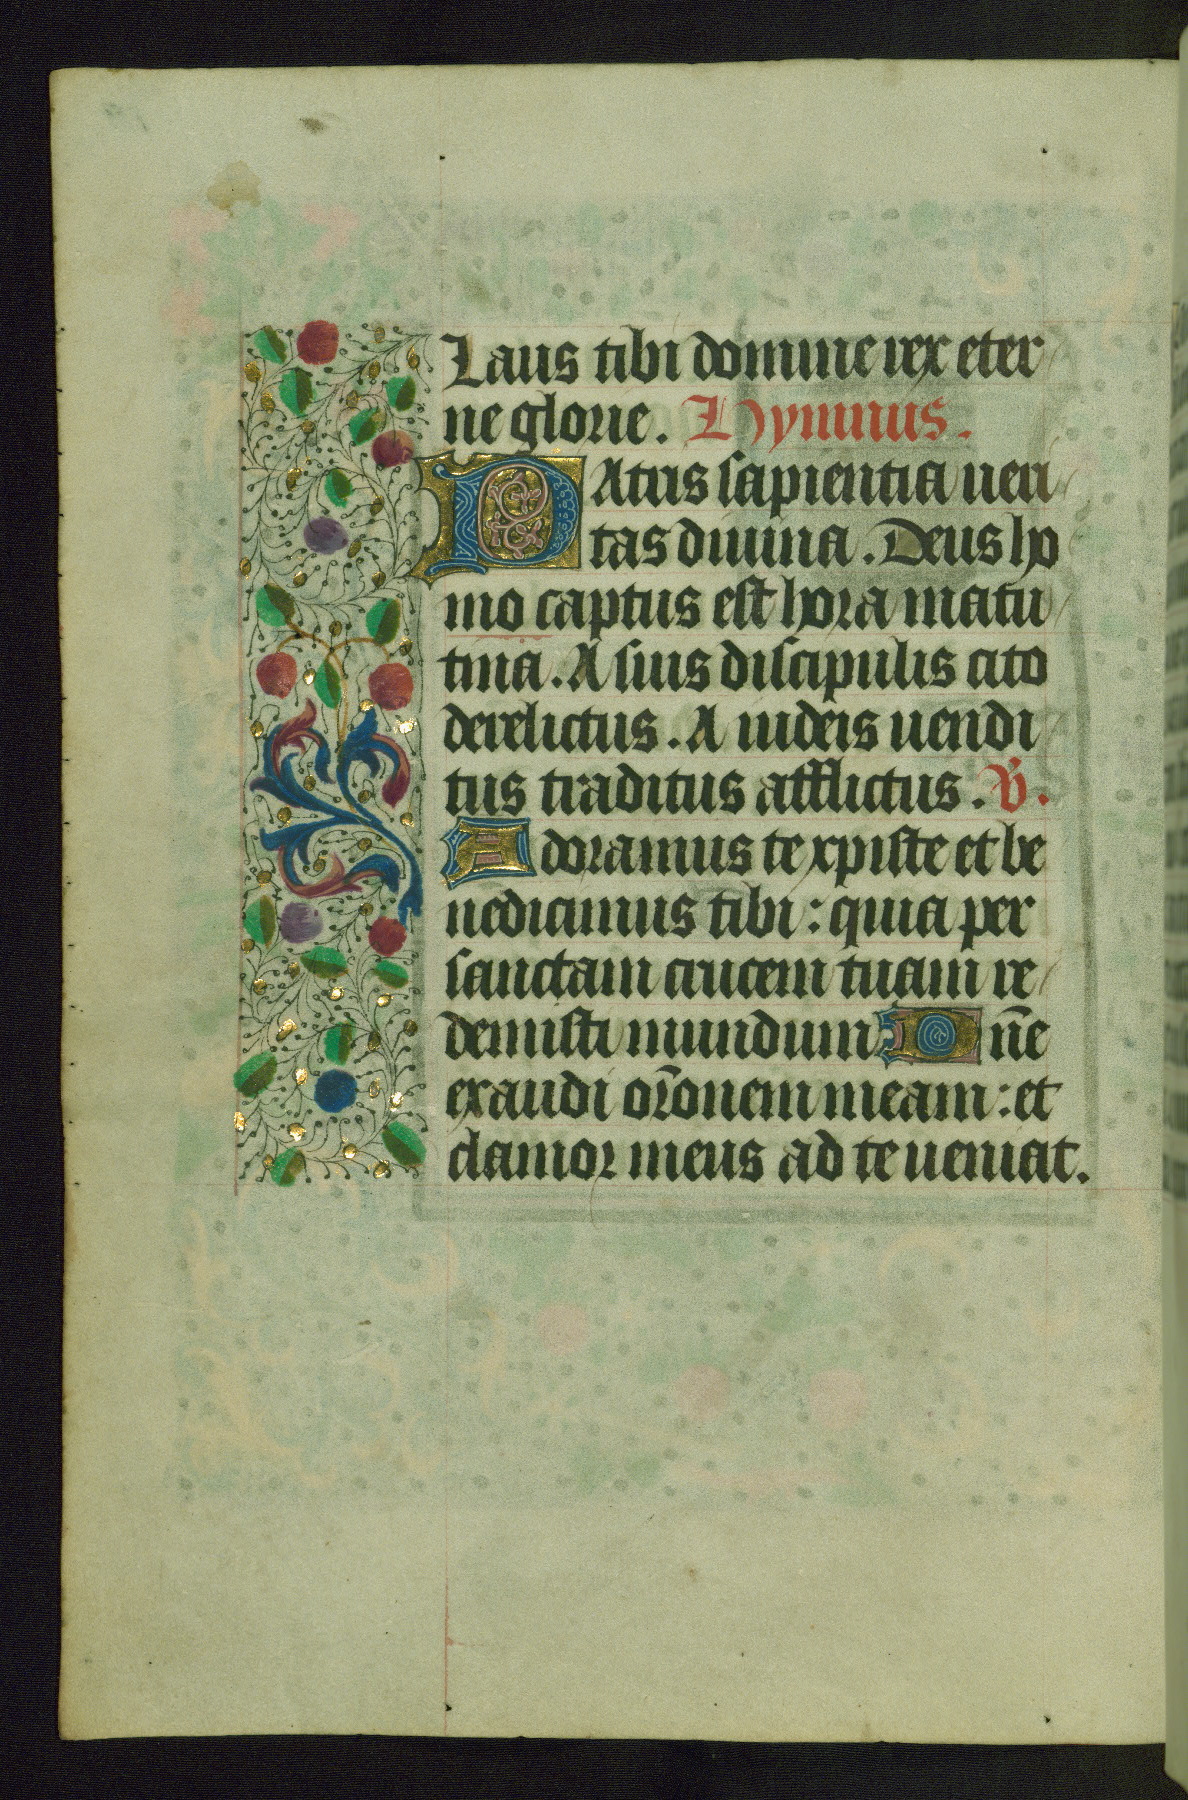 Laus tibi domine rex eter
ne glorie. Hymnus.
PAtris sapientia ueri
tas diuina. Deus ho
mo captus est hora matu
tina. A suis discipulis cito
derelictus. A iudeis uendi
tus traditus afflictus. V̄.
Adoramus te xpiste et be
nedicimus tibi: quia per
sanctam crucem tuam re
demisti mundum Dn̄e
exaudi or̄onem meam: et
clamor meus ad te ueniat.